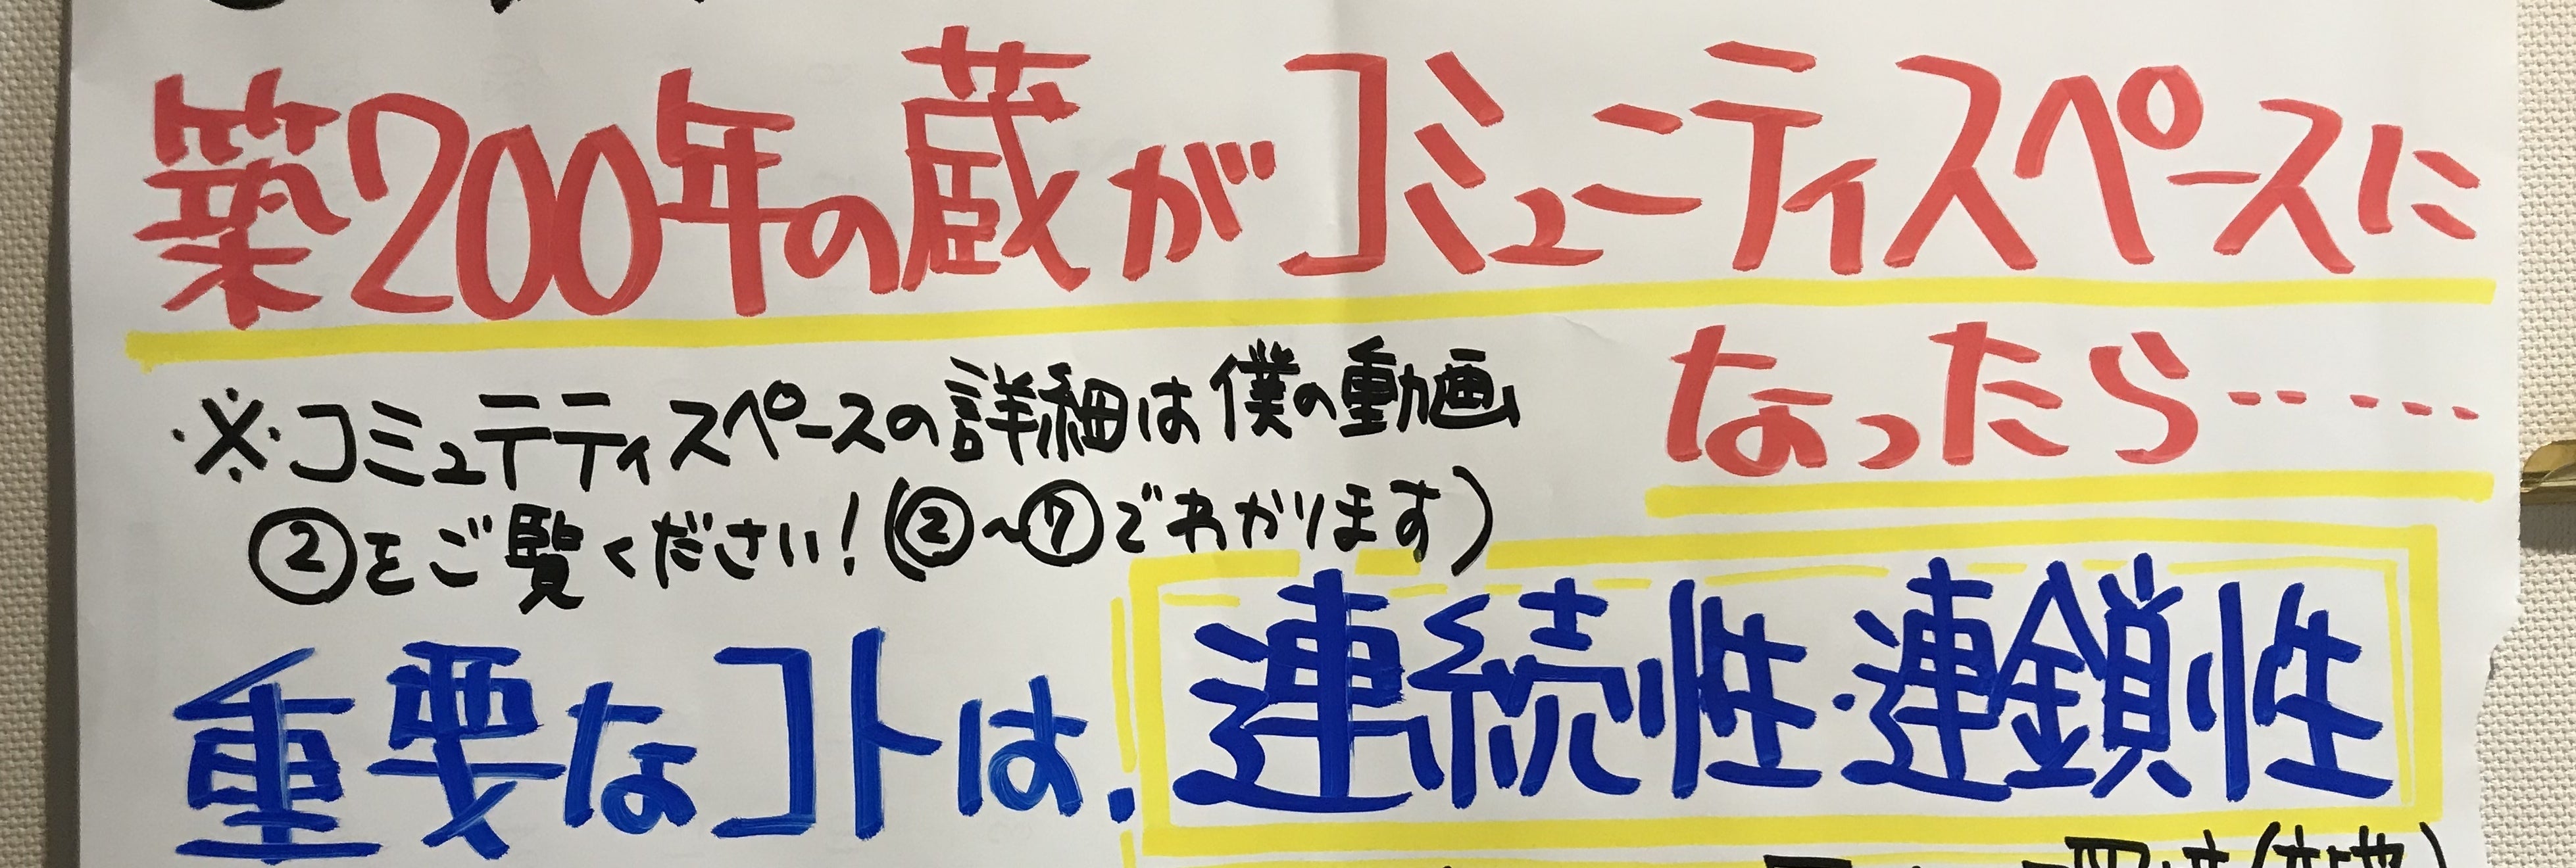 築200年の蔵がコミュニティスペースに
なったら……
※コミュテティスペースの詳細は僕の動画
②をご覧ください！(②〜⑦でわかります)
重要なコトは、連続性・連鎖性